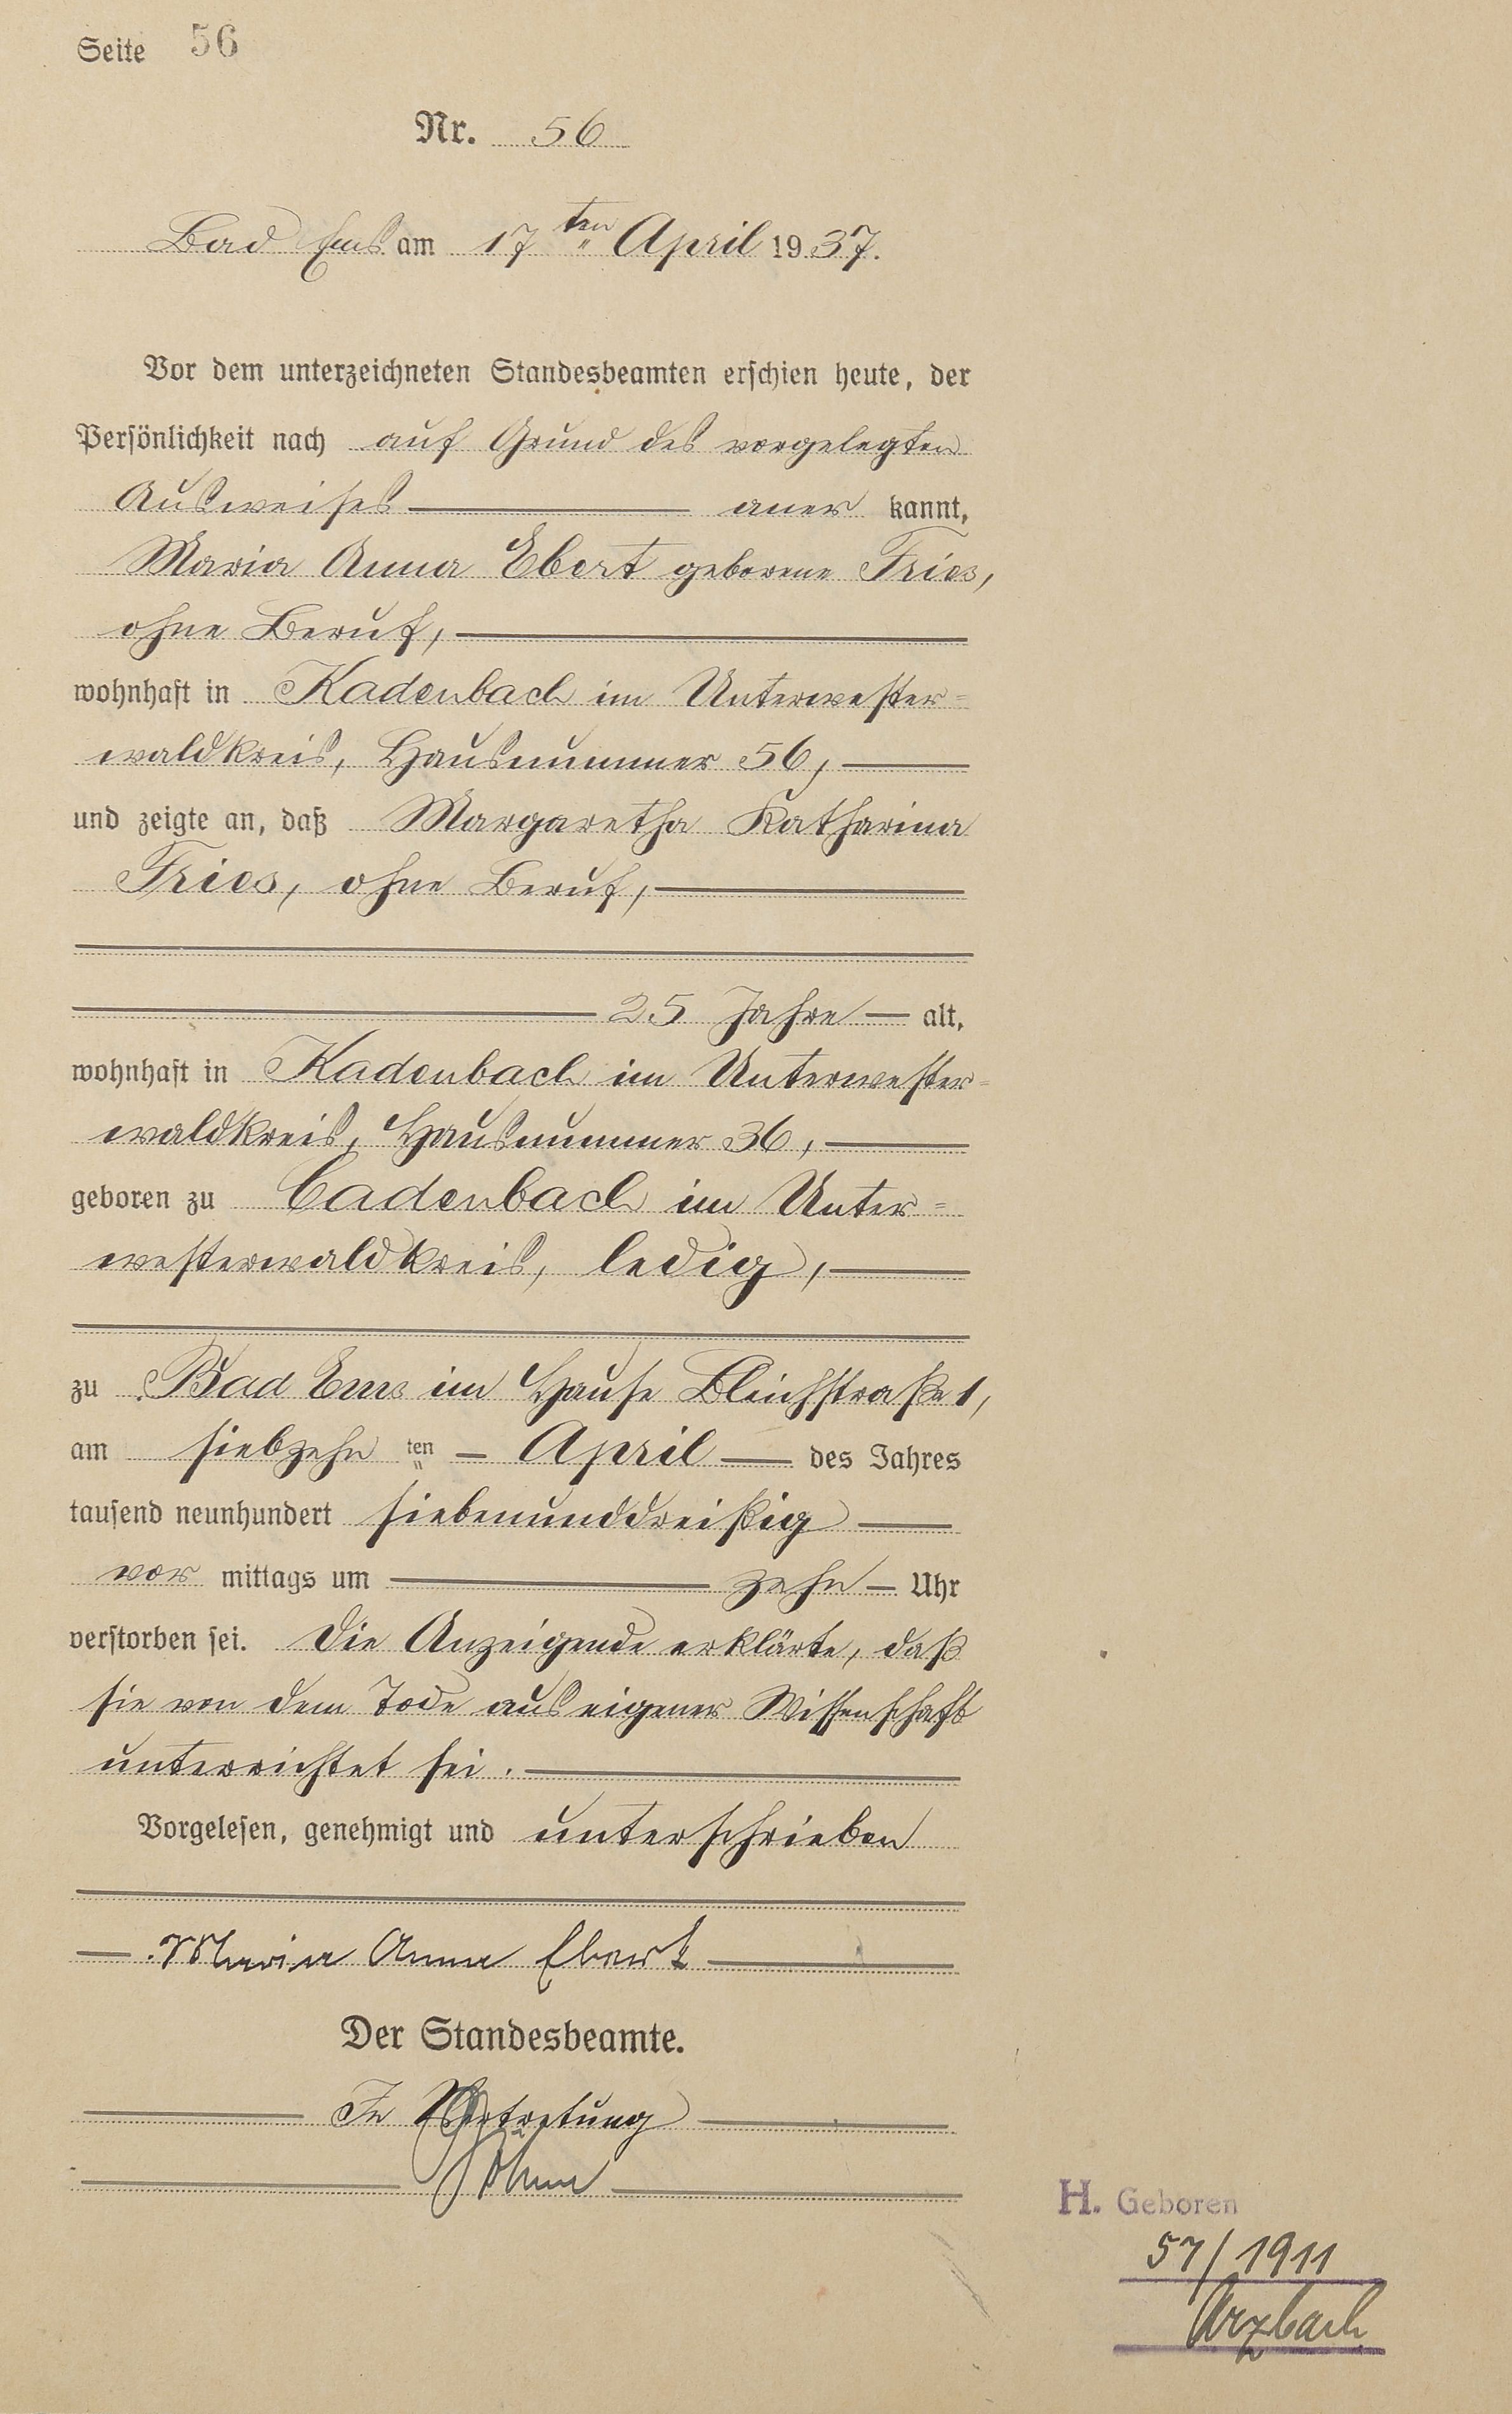 Seite 56
Nr. 56
Bad Ems am 17ten April 1937.
Vor dem unterzeichneten Standesbeamten erschien heute, der
Persönlichkeit nach auf Grund des vorgelegten
Ausweises aner kannt,
Maria Anna Ebert geborene Fries,
ohne Beruf,
wohnhaft in Kadenbach im Unterwester=
waldkreis, Hausnummer 56,
und zeigte an, daß Margaretha Katharina
Fries, ohne Beruf,
25 Jahre alt,
wohnhaft in Kadenbach im Unterwester=
waldkreis, Hausnummer 36,
geboren zu Cadenbach im Unter=
westerwaldkreis, ledig,
zu Bad Ems im Hause Bleichstraße 1,
am siebzehn ten April des Jahres
tausend neunhundert siebenunddreißig
vor mittags um zehn Uhr
verstorben sei. Die Anzeigende erklärte, daß
sie von dem Tode aus eigener Wissenschaft
unterrichtet sei.
Vorgelesen, genehmigt und unterschrieben
Maria Anna Ebert
Der Standesbeamte.
In Vertretung
H. Geboren
57/1911
Arzbach